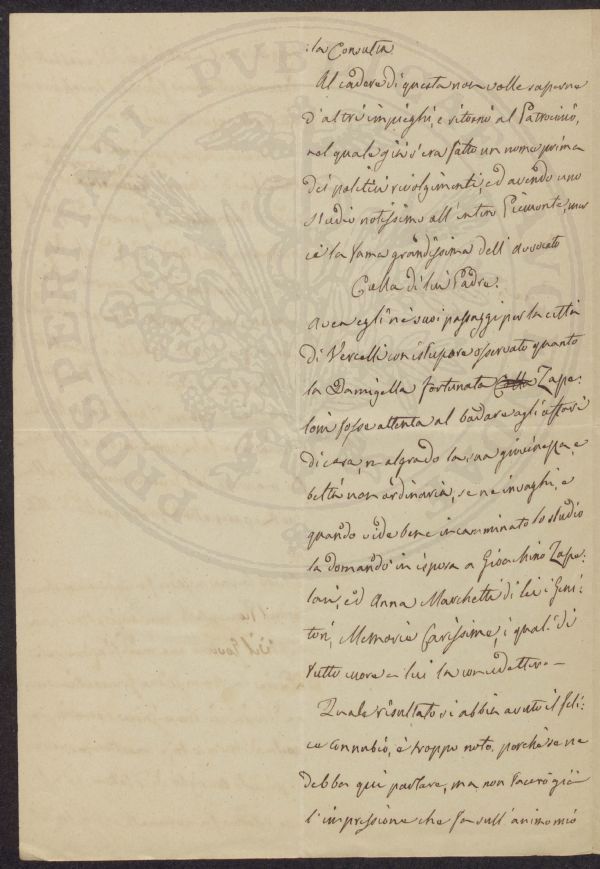 :la Consulta
Al cadere di questa non volle saperne
d'altri impieghi, e ritornò al Patrocinio,
nel quale già s'era fatto un nome prima
dei politici rivolgimenti, ed avendo uno
studio notissimo all'intero Piemonte, mer
cè la fama grandissima dell'avvocato
Culla di lui Padre.
Avea egli ne' suoi passaggi per la città
di Vercelli con istupore osservato quanto
la Damigella Fortunata Zape:
loni fosse attenta al badare agli affari
di casa, malgrado la sua giovinezza, e
beltà non ordinaria, se ne invaghì, e
quando vide bene incamminato lo studio
la domandò in isposa a Gioachino Zape:
loni, ed Anna Marchetti di lei i Geni:
tori, Memorie Carissime, i quali di
tutto cuore a lui la concedettero —
Quale risultato si abbia avuto il feli:
ce connubio, è troppo noto, perchè se ne
debba qui parlare, ma non tacerò già
l'impressione che fa sull'animo mio
PROSPERITATI PUBLICAE